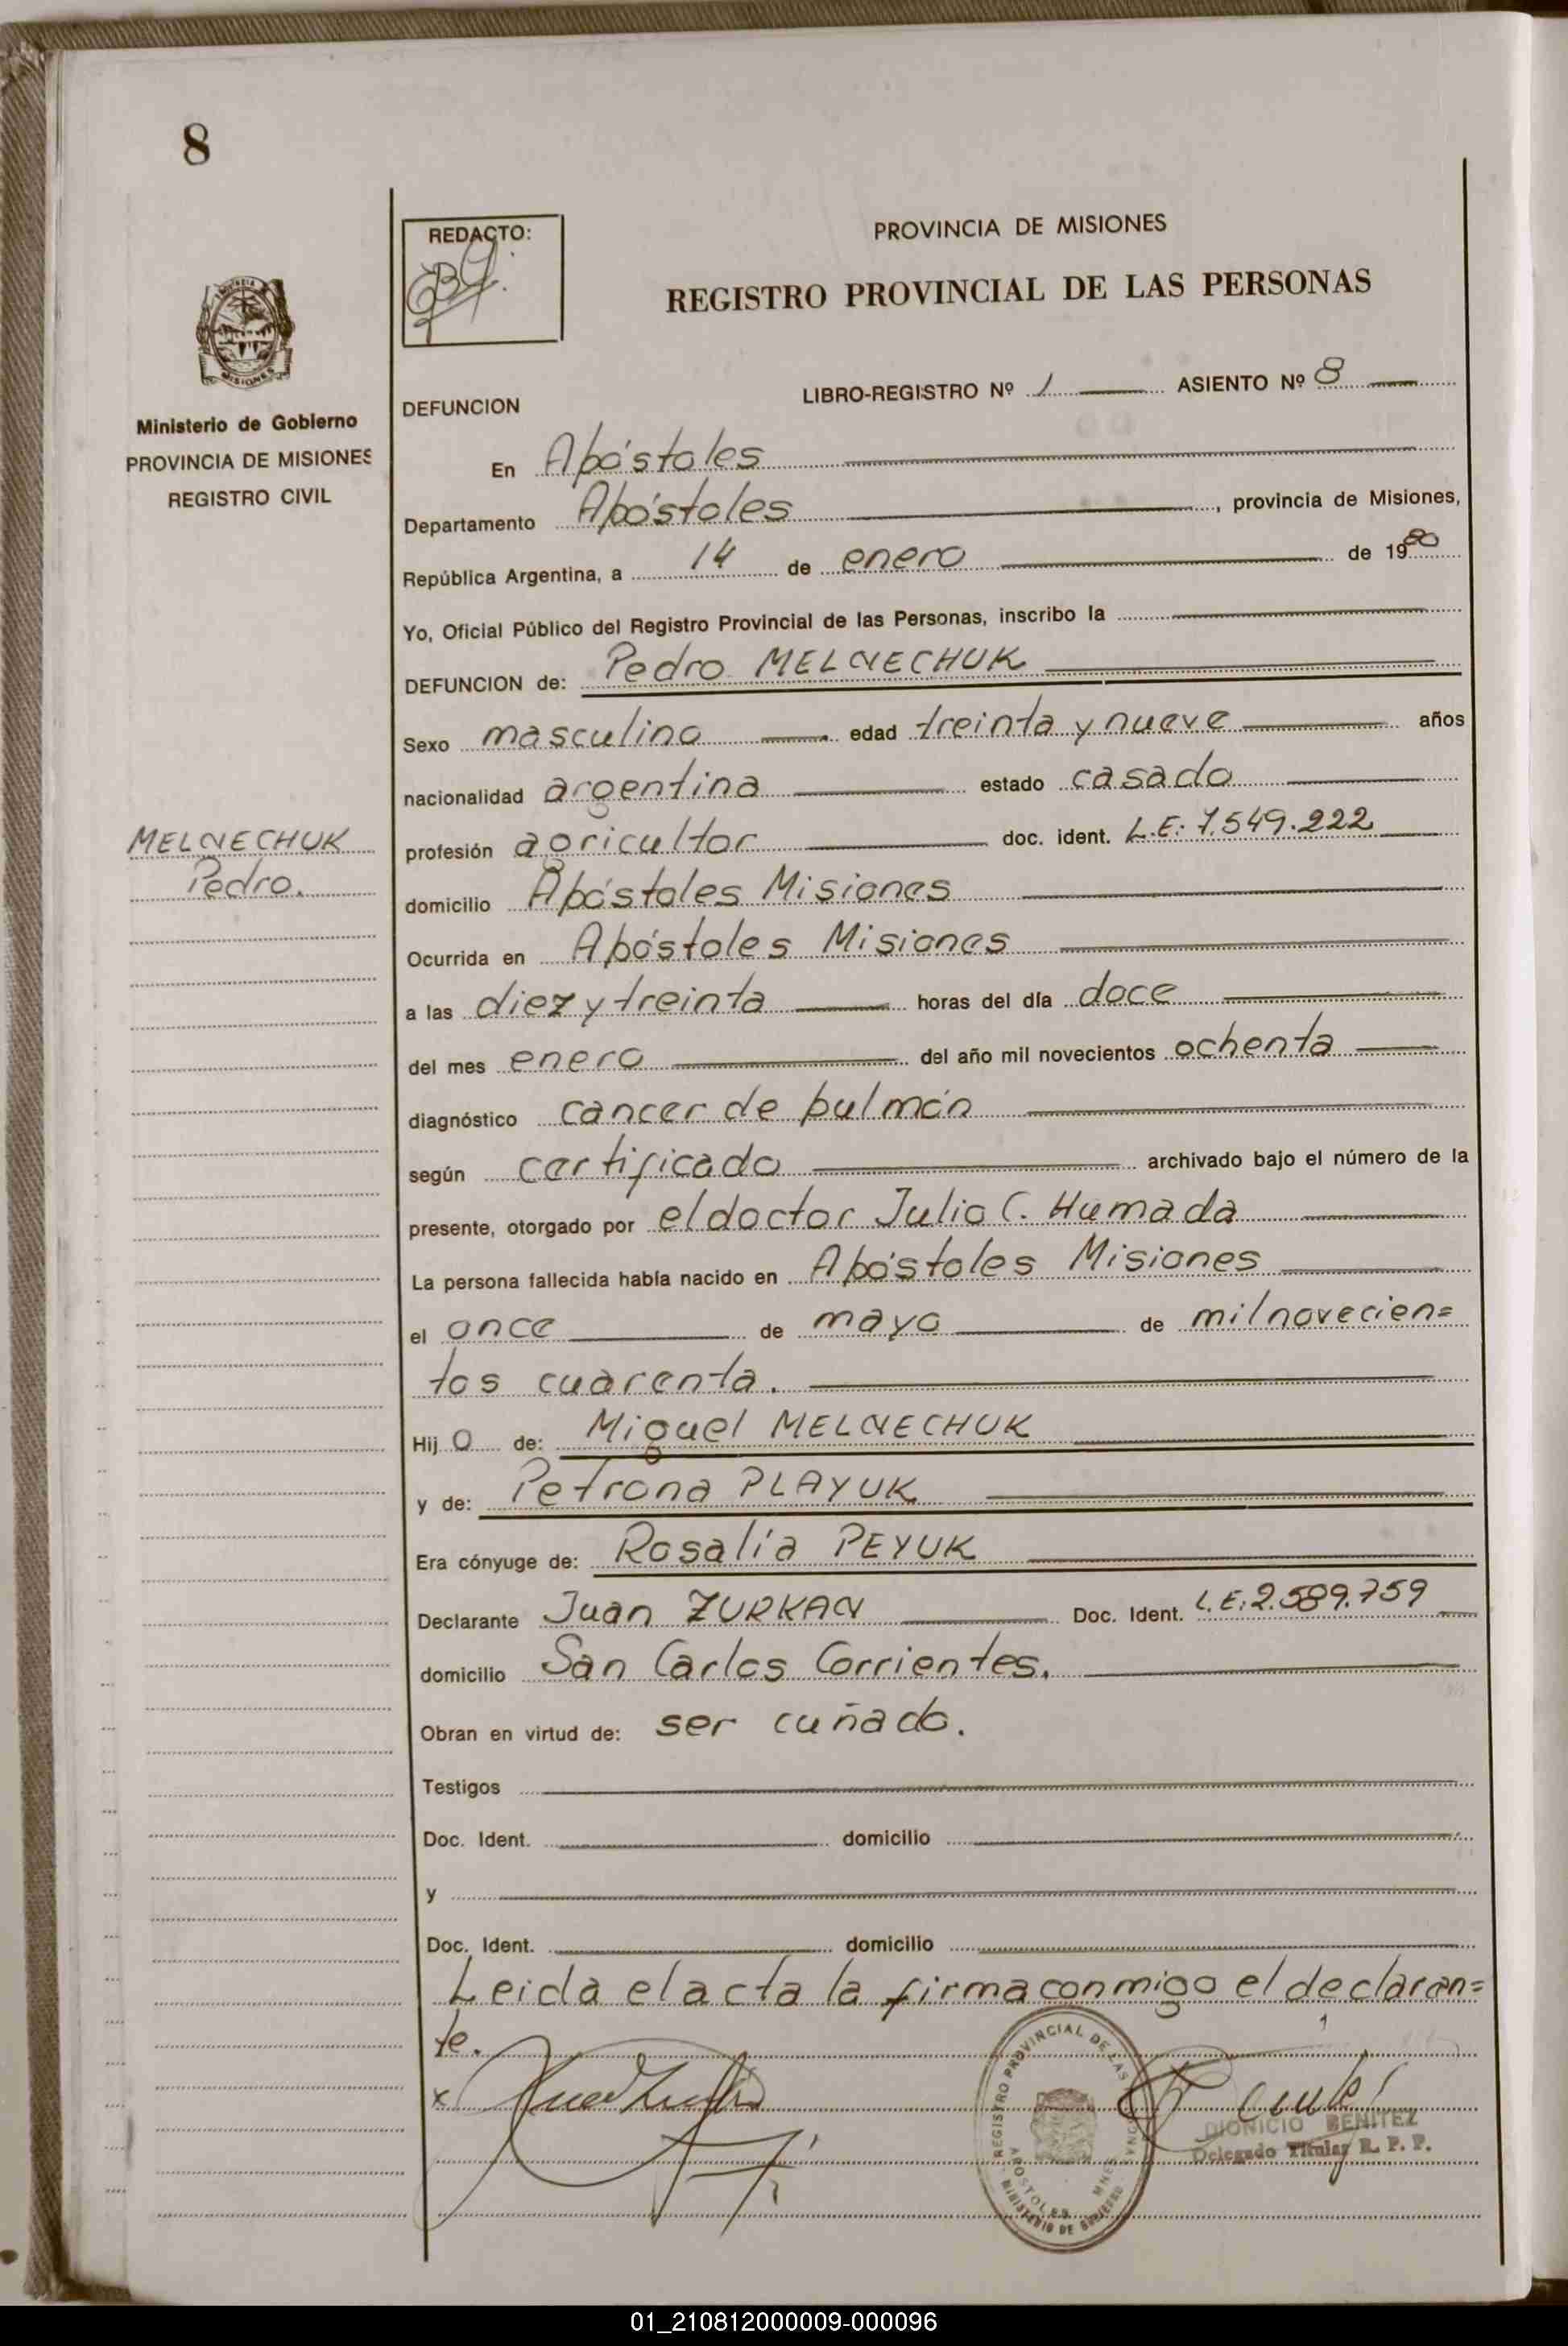 8
REDACTO:
PROVINCIA DE MISIONES
REGISTRO PROVINCIAL DE LAS PERSONAS
MISIONES
Ministerio de Gobierno
PROVINCIA DE MISIONES
REGISTRO CIVIL
LIBRO-REGISTRO Nº 1 ASIENTO Nº 8
DEFUNCION
En Apóstoles
Departamento Apóstoles, provincia de Misiones,
República Argentina, a 14 de enero de 1980
Yo, Oficial Público del Registro Provincial de las Personas, inscribo la
DEFUNCION de: Pedro MELNECHUK
Sexo masculino edad treinta y nueve años
nacionalidad argentina estado casado
MELNECHUK
Pedro.
profesión agricultor doc. ident. L.E: 7.549.222
domicilio Apóstoles Misiones
Ocurrida en Apóstoles Misiones
a las diez y treinta horas del día doce
del mes enero del año mil novecientos ochenta
diagnóstico cancer de pulmón
según certificado archivado bajo el número de la
presente, otorgado por el doctor Julio C. Humada
La persona fallecida había nacido en Apóstoles Misiones
el once de mayo de mil novecien=
tos cuarenta.
Hij o de: Miguel MELNECHUK
y de: Petrona PLAYUK
Era cónyuge de: Rosalía PEYUK
Declarante Juan ZURKAN Doc. Ident. L.E: 2.589.759
domicilio San Carlos Corrientes.
Obran en virtud de: ser cuñado.
Testigos
Doc. Ident. domicilio
y
Doc. Ident. domicilio
Leida el acta la firma conmigo el declaran=
te.
x
REGISTRO PROVINCIAL DE LAS PERSONAS
APOSTOLES MNES
MINISTERIO DE GOBIERNO
DIONICIO BENITEZ
Delegado Titular R. P. P.
01_210812000009-000096